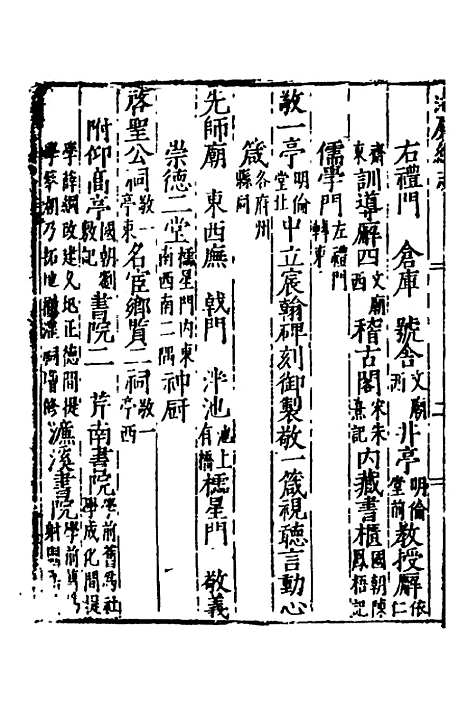 右禮門　倉庫　號舍文廟井亭明倫堂前教授廨依仁
齋東訓導廨四文廟西稽古閣宋朱熹記內藏書櫃國朝陳鳳梧記
儒學門左禮門轉東
敬一亭明倫堂北中立宸翰碑刻御製敬一箴視聽言動心
箴各府州縣同
先師廟　東西廡　戟門　泮池池上有橋櫺星門　敬義
崇德二堂櫺星門內東南西南二隅神厨
啓聖公祠敬一亭東名宦鄉賢二祠敬一亭西
附仰高亭國朝劉記書院二　芹南書院學前舊為社學成化間提
學薛綱改建又圮正德間提學蔡乃拓地祠增修濂溪書院學前